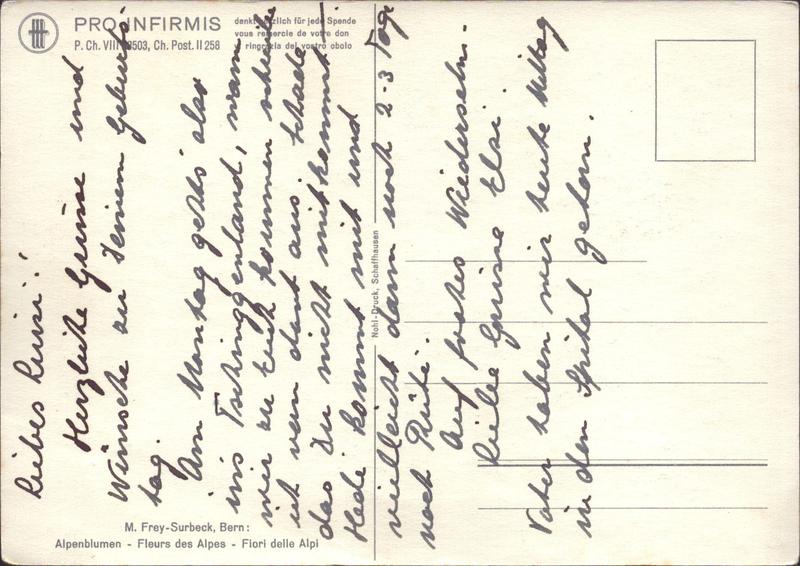 PRO INFIRMIS
P. Ch. VIII 23503, Ch. Post. II 258
denkt herzlich für jede Spende
vous remercie de votre don
ringrazia del vostro obolo
Liebes Luisi!
Herzliche Grüsse und
Wünsche zu Deinem Geburts-
tag.
Am Montag gehts also
ins Tschinggenland, wann
wir zu Euch kommen schreibe
ich von dort aus. Schade
das Du nicht mitkommst!
Hedi kommt mit und
vielleicht dann noch 2-3 Tage
nach Rüti.
Auf frohes Wiedersehn.
Liebe Grüsse Elsi.
Vater haben wir heute Mittag
in den Spital getan.
Nohl-Druck, Schaffhausen
M. Frey-Surbeck, Bern:
Alpenblumen - Fleurs des Alpes - Fiori delle Alpi